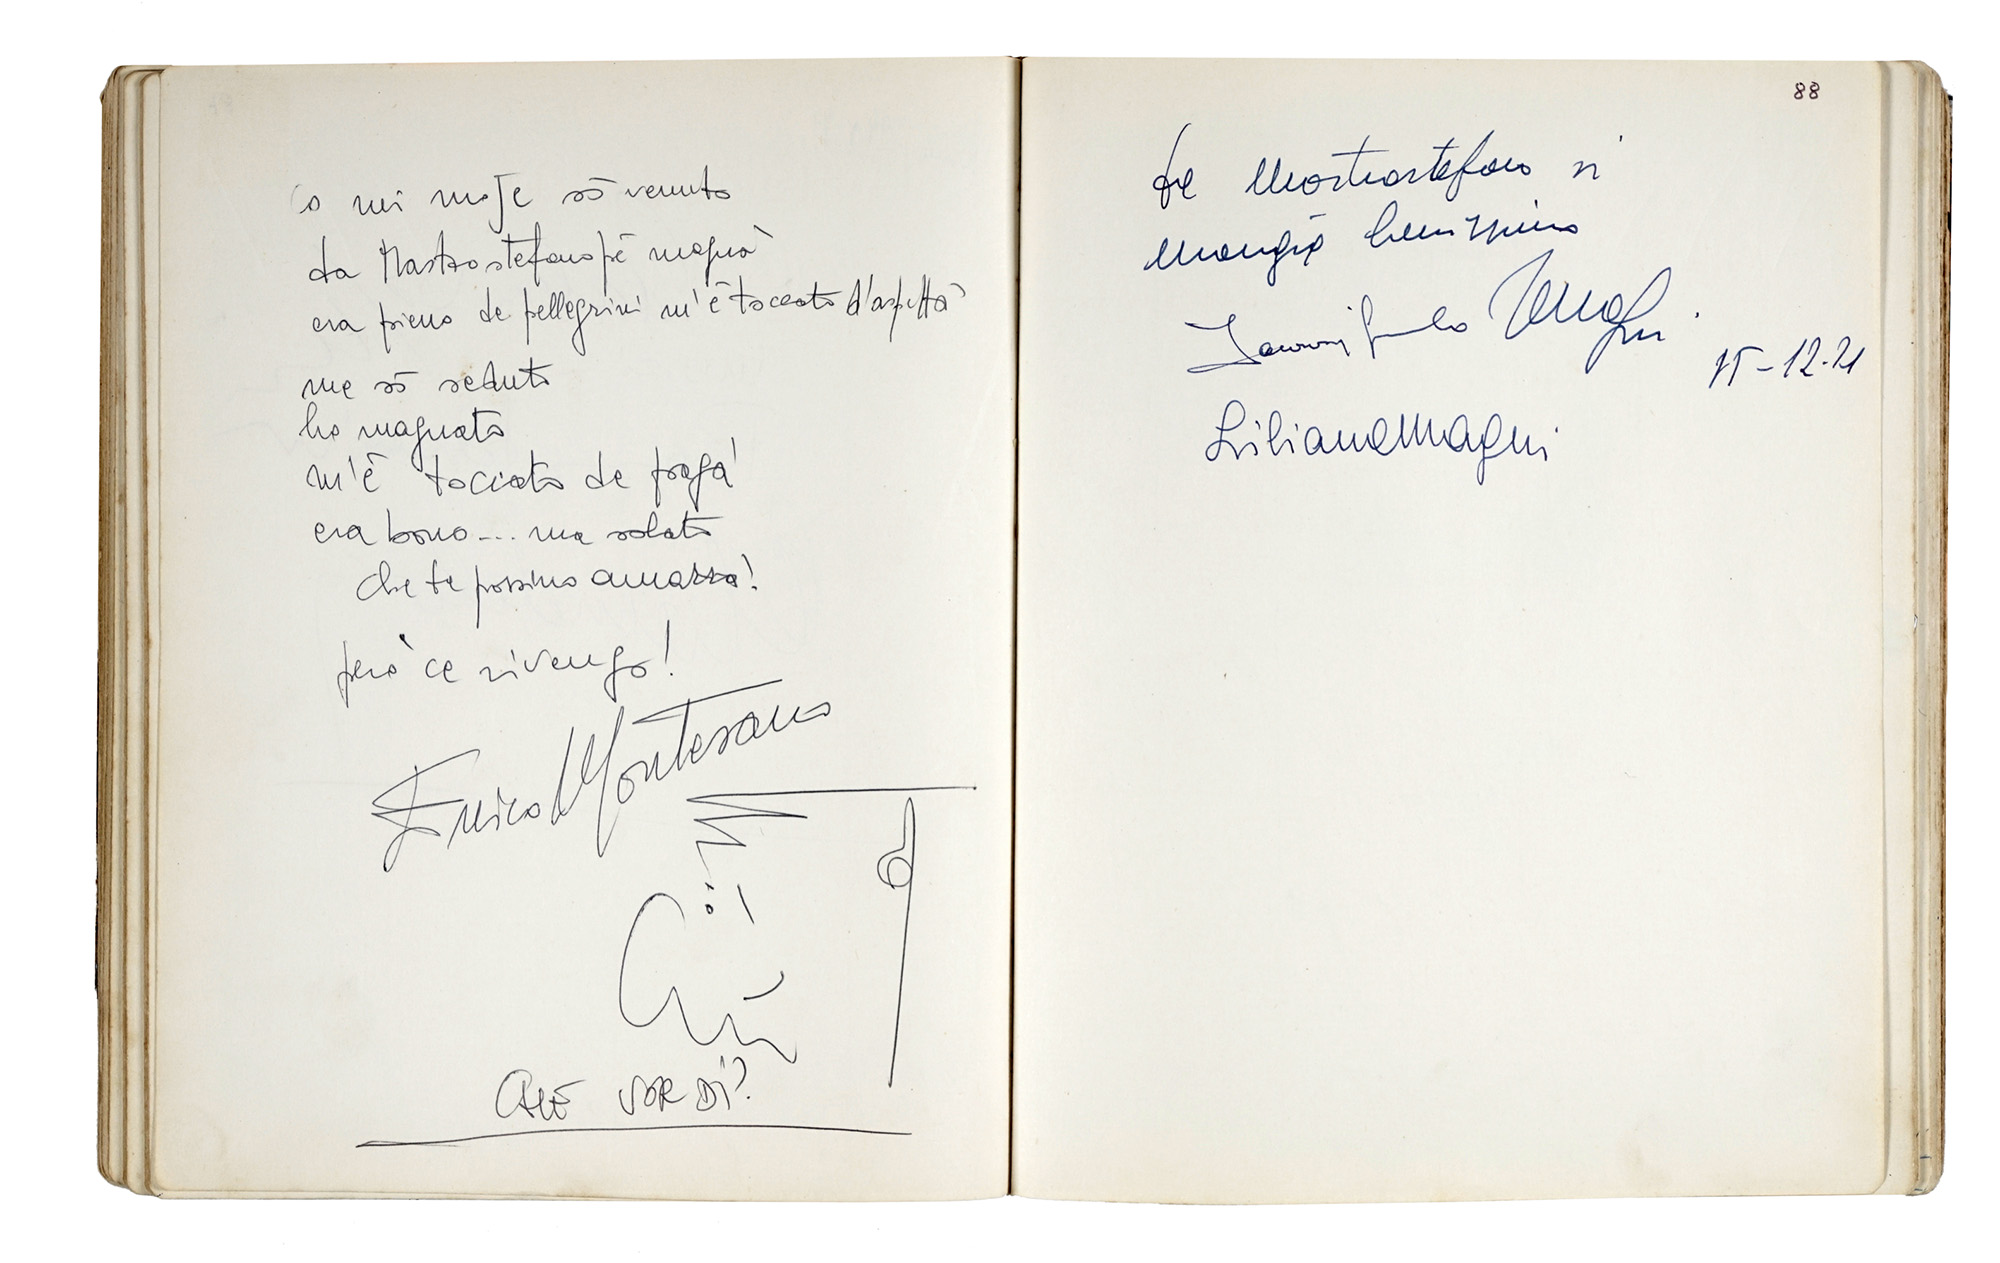 'o mi moje sò venuto
da Mastrostefano pe magnà
era pieno de pellegrini m'è toccato d'aspettà
me sò seduto
ho magnato
m'è tocciato de pagà
era bono... ma salato
che te possino amazza!
però ce rivengo!
Enrico Montesano
CHE VOR DI'?
88
Da Mastrostefano si
mangia benissimo
Magni
-12-
Liliana Magni